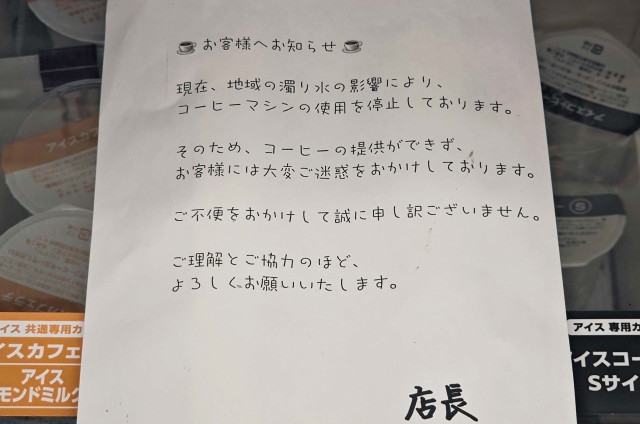 ☕ お客様へお知らせ ☕
現在、地域の濁り水の影響により、
コーヒーマシンの使用を停止しております。
そのため、コーヒーの提供ができず、
お客様には大変ご迷惑をおかけしております。
ご不便をおかけして誠に申し訳ございません。
ご理解とご協力のほど、
よろしくお願いいたします。
店長
アイスカ
イス 共通専用カ
イスカフェ
アイス
モンドミルク
アイス 専用カ
イスコー
Sサイ
S